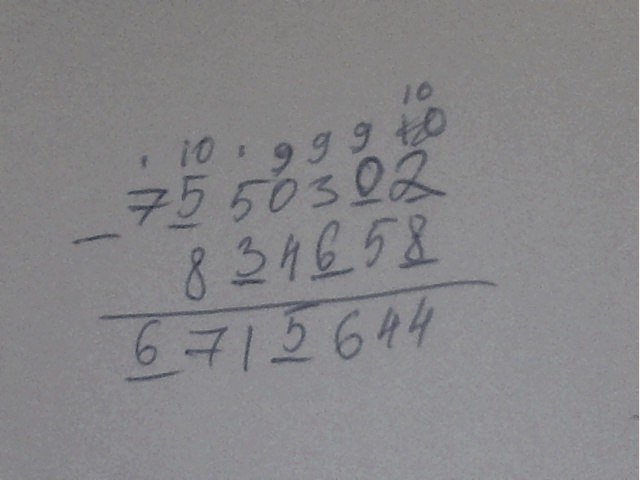 10
. 10 . 9 9 9 10
7550302
- 834658
6715644